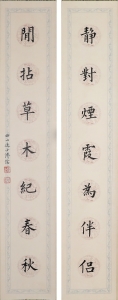 靜對煙霞為伴侶
閒拈草木紀春秋